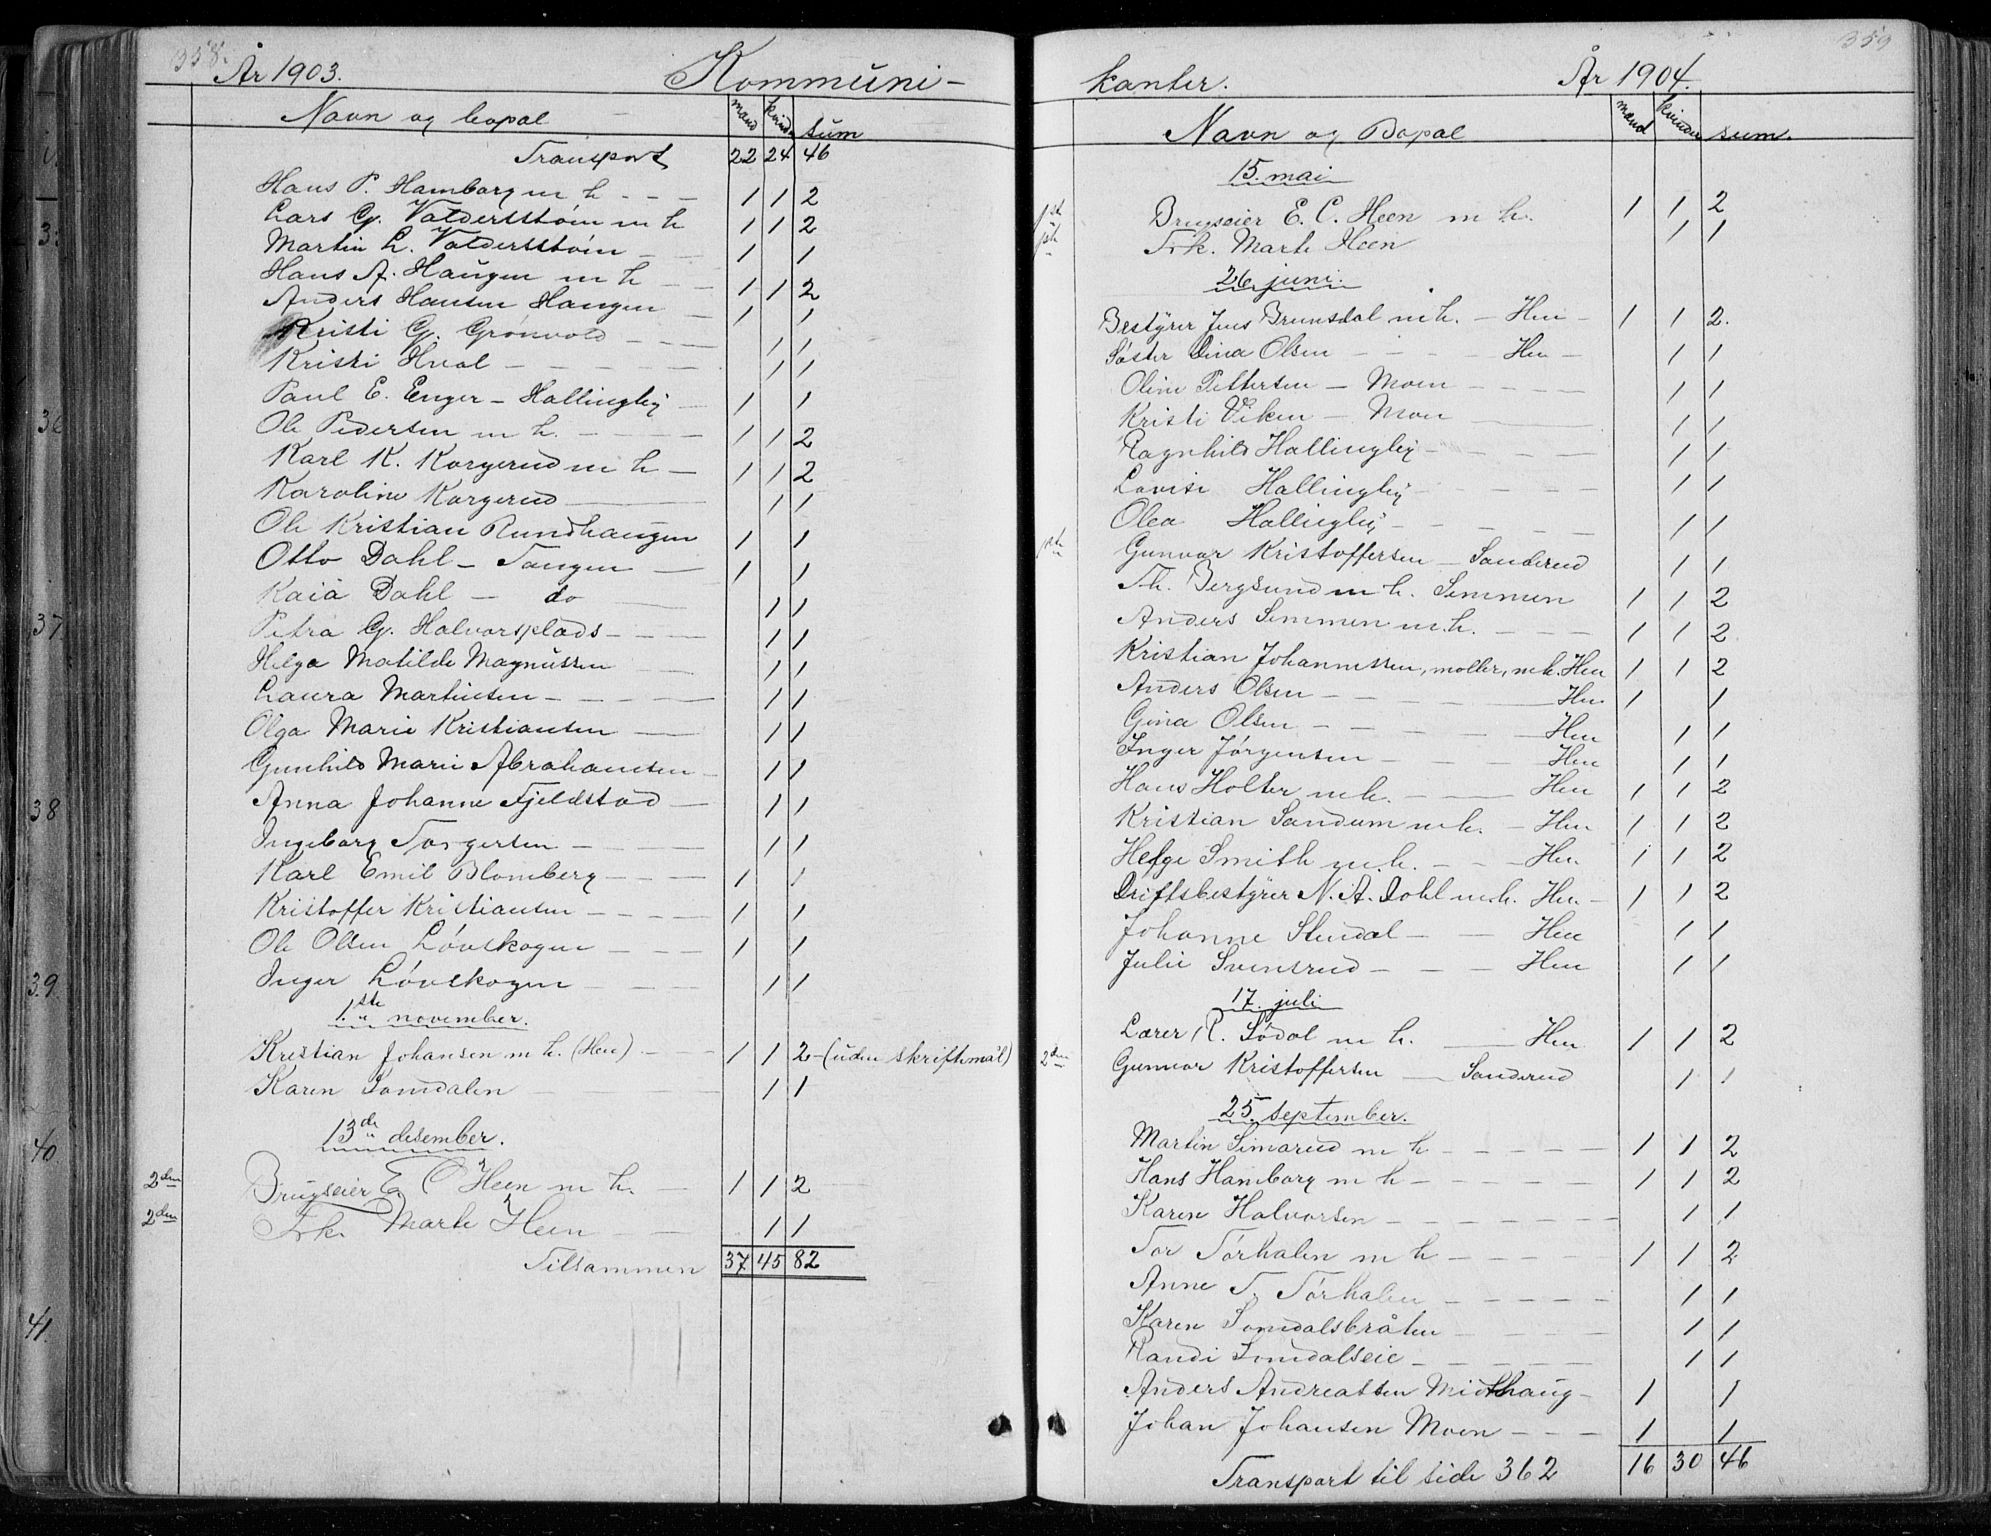 358.
År 1903. Kommuni-
Navn og bopæl mænd kvinder sum
Transport 22 24 46
Hans P. Hamborg m h. - - - 1 1 2
Lars G. Valdersstøin m h 1 1 2
Martin L. Valdersstøin - - 1 1
Hans A. Haugen m h - - 1 1 2
Anders Hansen Haugen - 1 1
Kristi G. Grønvold - - - 1 1
Kristi Hval - - - - - 1 1
Paul E. Enger - Hallingby - 1 1
Ole Pedersen m h. - - - - 1 1 2
Karl K. Korgerud m h - 1 1 2
Karoline Korgerud - 1 1
Ole Kristian Rundhaugen 1 1
Otto Dahl - Tangen - 1 1
Kaia Dahl - do - 1 1
Petra G. Halvorsplads - - - 1 1
Helga Matilde Magnussen - 1 1
Laura Martinsen - - - - - 1 1
Olga Marie Kristiansen - 1 1
Gunhild Marie Abrahamsen - 1 1
Anna Johanne Fjeldstad - 1 1
Ingeborg Torgersen - - - 1 1
Karl Emil Blomberg - - - 1 1
Kristoffer Kristiansen - - - - 1 1
Ole Olsen Løvskogen - - - 1 1
Inger Løvskogen - - - - 1 1
1ste november.
Kristian Johansen m h. (Hen) - - 1 1 2 - (uden skriftemål)
Karen Somdalen - 1 1
13de desember.
2den Brugseier E. C Heen m h. - 1 1 2
2den Frk. Marte Heen - - 1 1
Tilsammen 37 45 82
359
kanter. År 1904.
Navn og Bopæl mænd kvinder sum.
15. mai
Brugseier E. C. Heen m h. 1 1 2
Frk. Marte Heen 1 1
26 juni.
Bestyrer Jens Brunsdal m h. - Hen - 1 1 2.
Søster Dina Olsen - - - - Hen - 1 1
Oline Pettersen - Moen - - - - 1 1
Kristi Viken - Moen - 1 1
Ragnhild Hallingby - - - - 1 1
Lovise Hallingby - - - - - 1 1
Olea Hallingby - - - - 1 1
Gunvor Kristoffersen - Sanderud 1 1
Th. Bergsund m h. Semmen 1 1 2
Anders Semmen m. h. - - - 1 1 2
Kristian Johannessen, møller, m h. Hen 1 1 2
Anders Olsen - - - - - Hen 1 1
Gina Olsen - - - - - Hen 1 1
Inger Jørgensen - - - - Hen 1 1
Hans Holter m h. - - Hen 1 1 2
Kristian Sandum m h. - Hen 1 1 2
Helge Smith m. h. - - Hen 1 1 2
Driftsbestyrer N. A. Dohl m. h. Hen - 1 1 2
Johanne Stendal - - Hen 1 1
Julie Svensrud - - - Hen 1 1
17. juli
Lærer R. Sødal m h. - Hen 1 1 2
2den Gunvor Kristoffersen - Sanderud 1 1
25. september.
Martin Simarud m h - - - - - 1 1 2
Hans Hamborg m h - - - - - 1 1 2
Karen Halvorsen - - - - - - 1 1
Tor Tørhalen m h - - - - 1 1 2
Anne T. Tørhalen - - - - - 1 1
Karen Somdalsbråten - - - - 1 1
Randi Somdalseie - - - - - 1 1
Anders Andreassen Midthaug - 1 1
Johan Johansen Moen - - - 1 1
Transport til side 362 16 30 46
3
36
37
38
39.
40
41.